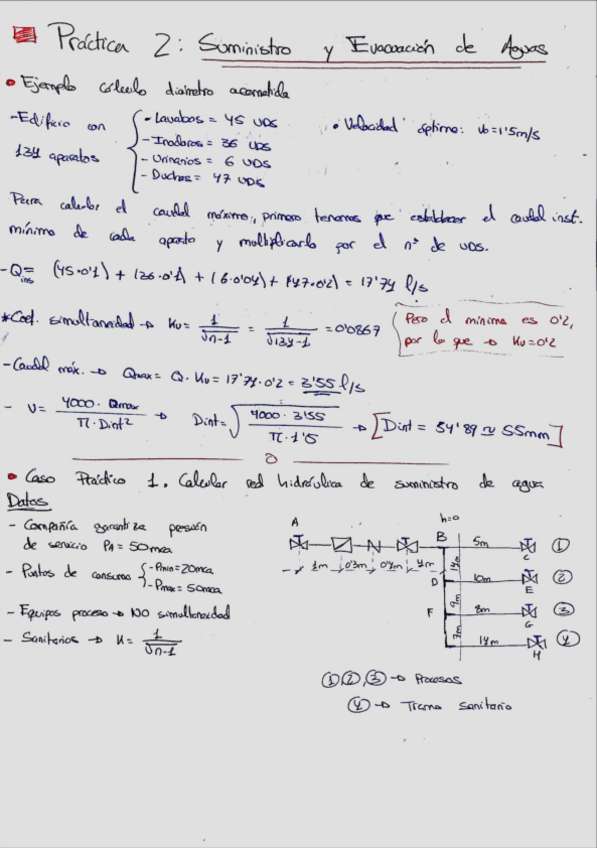 Práctica 2: Suministro y Evacuación de Aguas
• Ejemplo cálculo diámetro acometida
- Edificio con 134 aparatos
- Lavabos = 45 UDS
- Inodoros = 36 UDS
- Urinarios = 6 UDS
- Duchas = 47 UDS
• Velocidad óptima: v0=1'5m/s
Para calcular el caudal máximo, primero tenemos que establecer el caudal inst.
mínimo de cada aparato y multiplicarlo por el nº de uds.
- Qins = (45·0'1) + (36·0'1) + (6·0'04) + (47·0'2) = 17'74 l/s
*Coef. simultaneidad → Kv = 1/√n-1 = 1/√134-1 = 0'0867
Pero el mínimo es 0'2,
por lo que → Kv=0'2
- Caudal máx. → Qmax = Q·Kv = 17'74·0'2 = 3'55 l/s
- V = 4000·Qmax / π·Dint² → Dint = √4000·3'55 / π·1'5 → [Dint = 54'89 ≈ 55mm]
• Caso Práctico 1. Calcular red hidráulica de suministro de agua
Datos
- Compañía garantiza presión
de servicio PA = 50mca
- Puntos de consumo
- Pmin=20mca
- Pmax = 50mca
- Equipos proceso → NO simultaneidad
- Sanitarios → K = 1/√n-1
A
h=0
B
5m
C
1
1m
0'3m
0'4m
4m
14m
D
10m
E
2
9m
F
8m
G
3
7m
14m
H
4
1,2,3 → Procesos
4 → Tramo sanitario